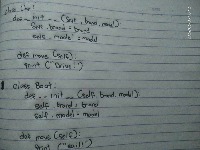 class Car:
def __init__(self, brand, model):
self.brand = brand
self.model = model
def move(self):
print("Drive!")
class Boat:
def __init__(self, brand, model):
self.brand = brand
self.model = model
def move(self):
print("Sail!")